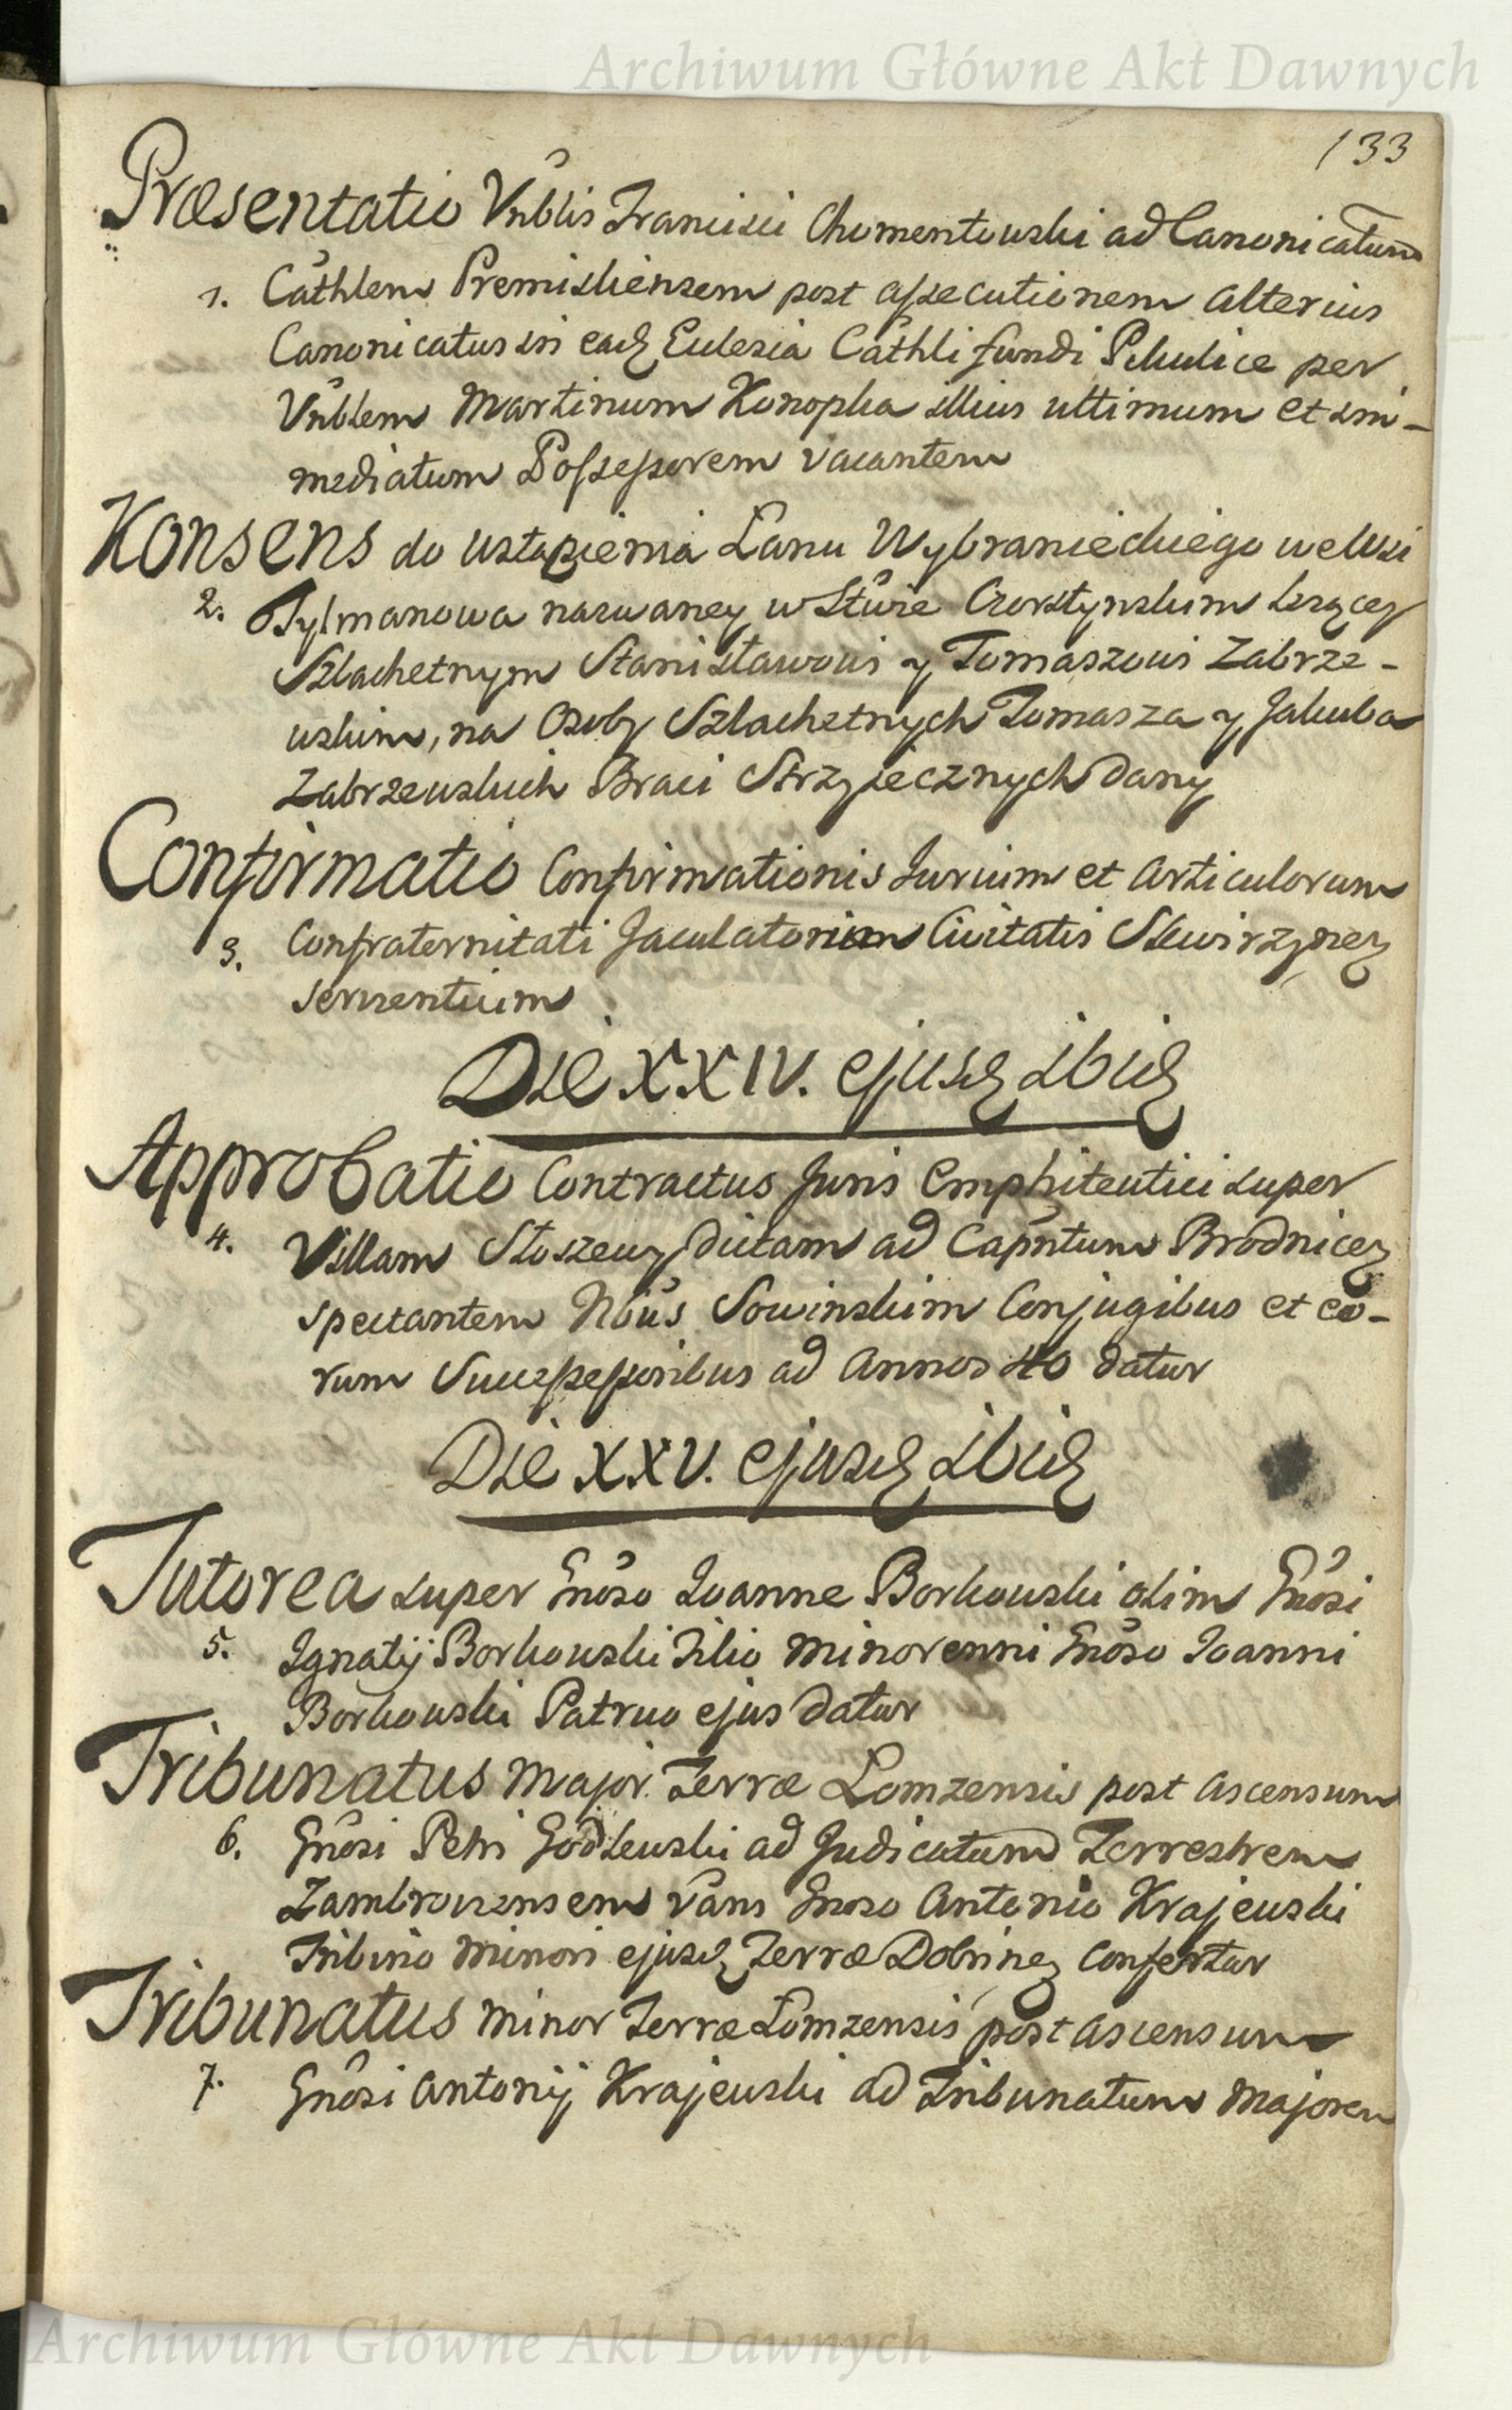 Archiwum Główne Akt Dawnych
133
Præsentatio Vnblis Francisci Chomentowski ad Canonicatum
1. Cathlem Premisliensem post assecutionem alterius
Canonicatus in eadq Ecclesia Cathli fundi Pikulice per
Vnblem Martinum Konopka illius ultimum et im-
mediatum Possessorem vacantem
Konsens do ustąpienia Łanu Wybranieckiego we Wsi
2. Tylmanowa nazwaney w Stwie Czorsztynskim leżącey
Szlachetnym Stanisławowi y Tomaszowi Zabrze-
wskim, na Osoby Szlachetnych Tomasza y Jakuba
Zabrzewskich Braci Stryiecznych dany
Confirmatio Confirmationis Jurium et Articulorum
3. Confraternitati Jaculatorum Civitatis Skwirzynez
servientium
Die XXIV. ejusdq ibidq
Approbatio Contractus Juris Emphiteutici super
4. Villam Stoszewy dictam ad Capntum Brodnicez
spectantem Nbus Sowinskim Conjugibus et eo-
rum Successoribus ad Annos 40 datur
Die XXV. ejusdq ibidq
Tutorea super Gnoso Joanne Borkowski olim Gnosi
5. Ignatij Borkowski Filio minorenni Gnoso Joanni
Borkowski Patruo ejus datur
Tribunatus Major Terræ Lomzensis post ascensum
6. Gnosi Petri Godlewski ad Judicatum Terrestrem
Zambrovensem vans Gnoso Antonio Krajewski
Tribuno minori ejusdq Terræ Dobrinez confertur
Tribunatus minor Terræ Lomzensis post ascensum
7. Gnosi Antonij Krajewski ad Tribunatum Majorem
Archiwum Główne Akt Dawnych